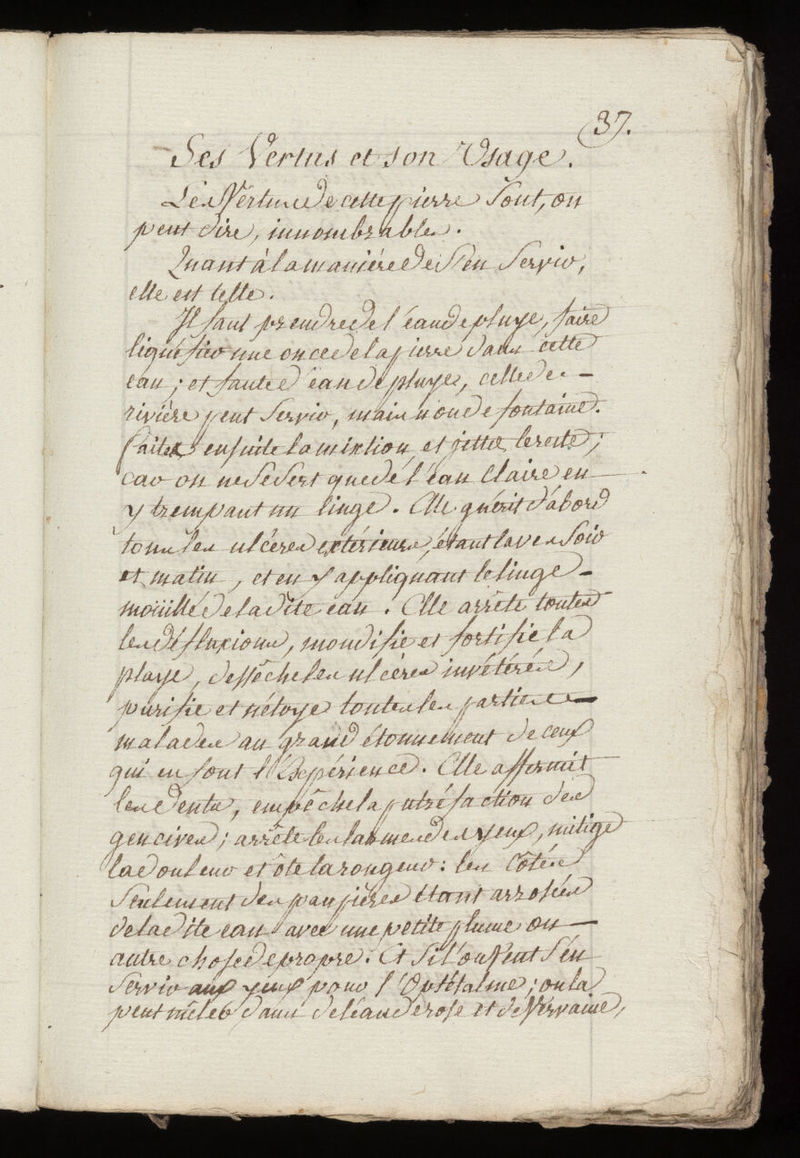 37.
Ses Vertus et son Usage.
Les Vertus de cette pierre sont, on
peut dire, innombrables.
Quant à la maniére de s'en servir,
elle est telle.
Il faut prendre de l'éau de pluye, faire
liquéfier une once de la pierre dans cette
eau; et faute d'éau de pluyes, celle de —
rivière peut servir, mais non de fontaine.
faites ensuite la mixtion et jettés le reste;
car on ne se sert que de l'éau claire en
y trempant un linge. Elle guérit d'abord
tous les ulcéres extérieurs, étant lavés soir
et matin, et en y appliquant le linge —
moüillé de la dite eau. Elle arrête toutes
les défluxions, mondifie et fortifie la
playe, desséche les ulcéres invétérés,
purifie et nétoye toutes les parties —
malades au grand étonnement de ceux
qui en font l'Expérience. Elle affermit
les dents, empêche la putréfaction des
gencives; arrête les larmes des yeux, mitige
la douleur et ôte la rougeur: les côtés
seulement des paupières étant arrosées
de la dite eau avec une petite plume ou —
autre chose de propre. Et si l'on veut s'en
servir aux yeux pour l'Opthtalmie; on la
peut mêler dans de l'éau de rose et de Vervaine,